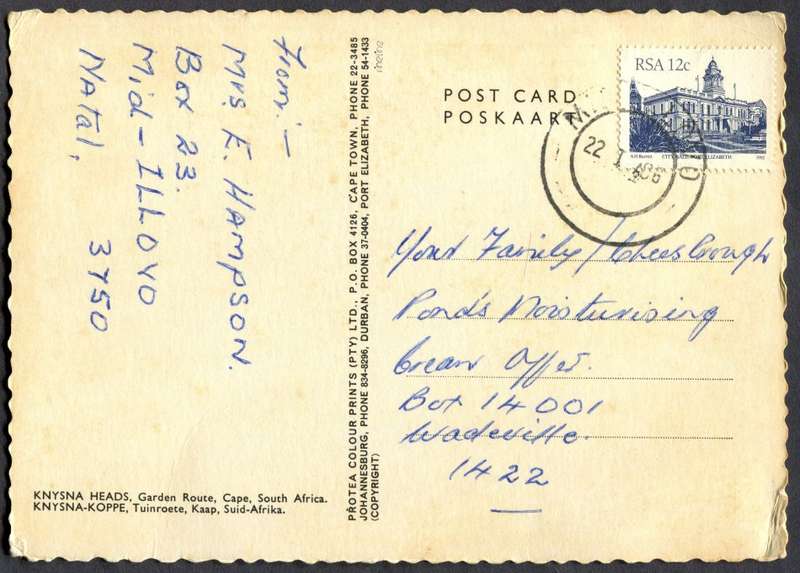 From:-
Mrs. E. HAMPSON.
Box 23.
Mid-ILLOVO
Natal,
3750
KNYSNA HEADS, Garden Route, Cape, South Africa.
KNYSNA-KOPPE, Tuinroete, Kaap, Suid-Afrika.
PROTEA COLOUR PRINTS (PTY) LTD., P.O. BOX 4126, CAPE TOWN, PHONE 22-3485
JOHANNESBURG, PHONE 834-8296, DURBAN, PHONE 37-0404, PORT ELIZABETH, PHONE 54-1433
(COPYRIGHT)
POST CARD
POSKAART
RSA 12c
CITY HALL PORT ELIZABETH 1982
22 I 86
Your Family/Cheesbrough
Ponds Moisturising
Cream Offer.
Box 14001
Wadeville
1422